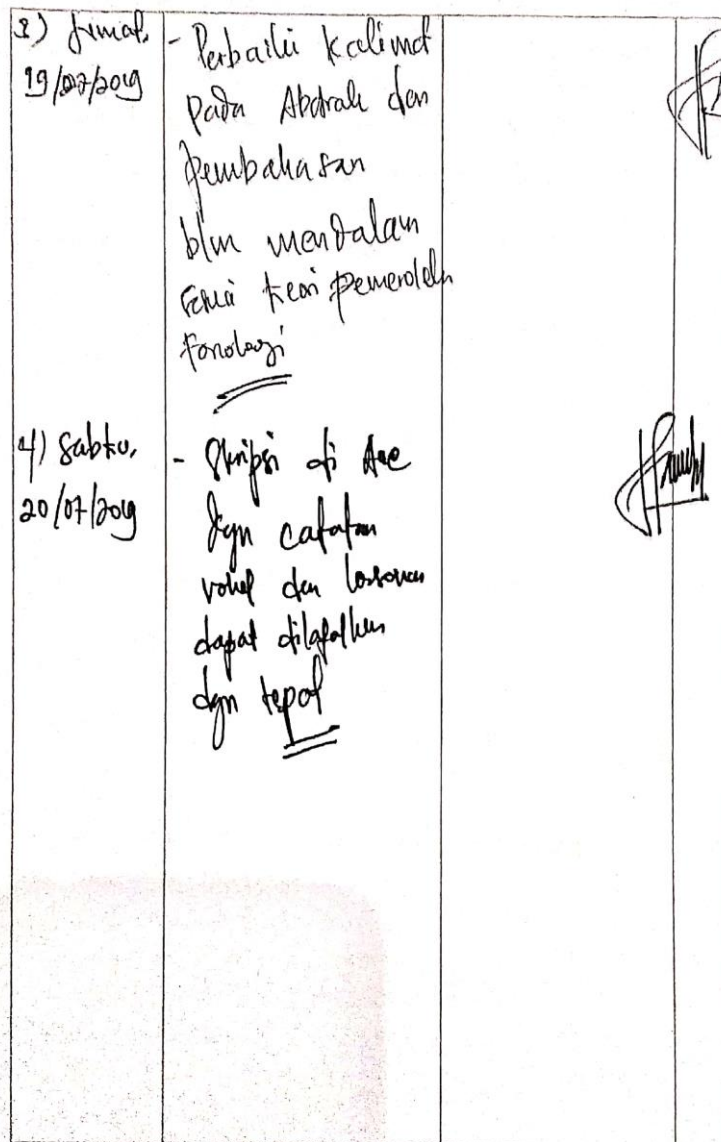 3) Jumat,
19/07/2019
- Perbaiki kalimat
pada Abstrak dan
pembahasan
blm mendalam
teori pemeroleh
fonologi
4) Sabtu,
20/07/2019
- Skripsi di Acc
dgn catatan
vokal dan konsonan
dapat dilafalkan
dgn tepat